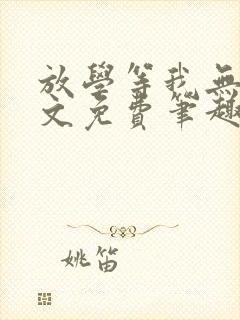 放學等我無
文免費筆趣
姚笛